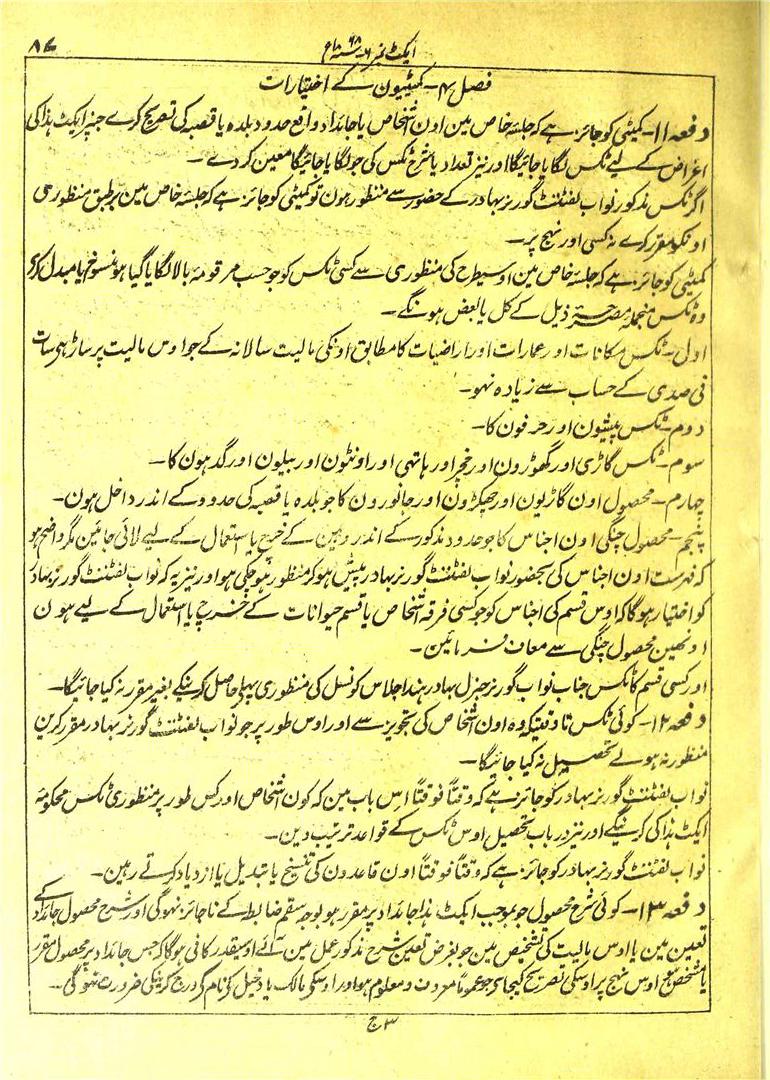 ایکٹ نمبر ۶ سنہ ۱۸۶۸ع
۸۷
فصل ۴ - کمیٹیون کے اختیارات
دفعہ ۱۱ - کمیٹی کو جائز ہے کہ جلسۂ خاص مین اون اشخاص یا جائداد واقع حدود بلدہ یا قصبہ کی تصریح کرے جنپر ایکٹ ہذا کی
اغراض کے لیے ٹکس لگایا جائیگا اور نیز تعداد یا شرح ٹکس کی جو لگایا جائیگا معین کر دے -
اگر ٹکس مذکور نواب لفٹنٹ گورنر بہادر کے حضور سے منظور ہون تو کمیٹی کو جائز ہے کہ جلسۂ خاص مین برطبق منظوری
اونکو مقرر کرے نہ کسی اور نہج پر -
کمیٹی کو جائز ہے کہ جلسۂ خاص مین اوسیطرح کی منظوری سے کسی ٹکس کو جو حسب مرقومۂ بالا لگایا گیا ہو منسوخ یا مبدل کرے
وہ ٹکس منجملہ مصرحۂ ذیل کے کل یا بعض ہونگے -
اول - ٹکس مکانات اور عمارات اور اراضیات کا مطابق اونکی مالیت سالانہ کے جو اوس مالیت پر ساڑہی سات
فی صدی کے حساب سے زیادہ نہو -
دوم - ٹکس پیشون اور حرفون کا -
سوم - ٹکس گاڑی اور گھوڑون اور خچر اور ہاتھی اور اونٹون اور بیلون اور گدہون کا -
چہارم - محصول اون گاڑیون اور چھکڑون اور جانورون کا جو بلدہ یا قصبہ کی حدود کے اندر داخل ہون -
پنجم - محصول چنگی اون اجناس کا جو حدود مذکور کے اندر وہین کے خرچ یا استعمال کے لیے لائی جائین مگر واضح ہو
کہ فہرست اون اجناس کی بحضور نواب لفٹنٹ گورنر بہادر پیش ہو کر منظور ہو چکی ہو اور نیز یہ کہ نواب لفٹنٹ گورنر بہادر
کو اختیار ہوگا کہ اوس قسم کی اجناس کو جو کسی فرقہ اشخاص یا قسم حیوانات کے خرچ یا استعمال کے لیے ہون
اونھین محصول چنگی سے معاف فرمائین -
اور کسی قسم کا ٹکس جناب نواب گورنر جنرل بہادر ہند اجلاس کونسل کی منظوری پہلے حاصل کرنیکے بغیر مقرر نہ کیا جائیگا -
دفعہ ۱۲ - کوئی ٹکس تاوقتیکہ وہ اون اشخاص کی تجویز سے اور اوس طور پر جو نواب لفٹنٹ گورنر بہادر مقرر کرین
منظور نہ ہولے تحصیل نہ کیا جائیگا -
نواب لفٹنٹ گورنر بہادر کو جائز ہے کہ وقتاً فوقتاً اس باب مین کہ کون اشخاص اور کس طور پر منظوری ٹکس محکومۂ
ایکٹ ہذا کی کرینگے اور نیز در باب تحصیل اوس ٹکس کے قواعد ترتیب دین -
نواب لفٹنٹ گورنر بہادر کو جائز ہے کہ وقتاً فوقتاً اون قاعدون کی تنسیخ یا تبدیل یا ازدیاد کرتے رہین -
دفعہ ۱۳ - کوئی شرح محصول جو بموجب ایکٹ ہذا جائداد پر مقرر ہو بوجہ سقم ضابطہ کے ناجائز نہوگی اور شرح محصول جائداد کے
تعین مین یا اوس مالیت کی تشخیص مین جو بغرض تعین شرح مذکور عمل مین آئے اوسیقدر کافی ہوگا کہ جس جائداد پر محصول مقرر
یا مشخص ہو اوس نہج پر اوسکی تصریح کیجاوے جو عموماً معروف و معلوم ہو اور اوسکی مالک یا دخیل کی نام کی درج کرنیکی ضرورت نہوگی -
۳ ج